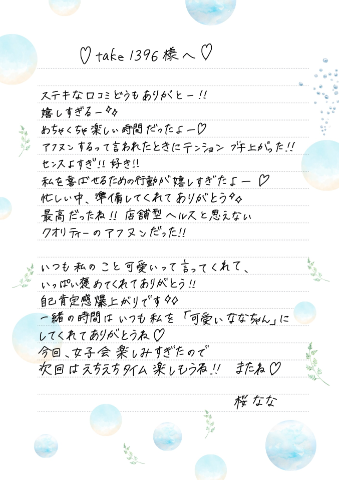 ♡take1396様へ♡
ステキな口コミどうもありがとー!!
嬉しすぎるー✧✧
めちゃくちゃ楽しい時間だったよー♡
アフヌンするって言われたときにテンションブチ上がった!!
センスよすぎ!!好き!!
私を喜ばせるための行動が嬉しすぎたよー♡
忙しい中、準備してくれてありがとう✧✧
最高だったね!!店舗型ヘルスと思えない
クオリティーのアフヌンだった!!
いつも私のこと可愛いって言ってくれて、
いっぱい褒めてくれてありがとう!!
自己肯定感爆上がりです✧✧
一緒の時間はいつも私を「可愛いななちゃん」に
してくれてありがとうね♡
今回、女子会楽しみすぎたので
次回はえちえちタイム楽しもうね!! またね♡
桜なな